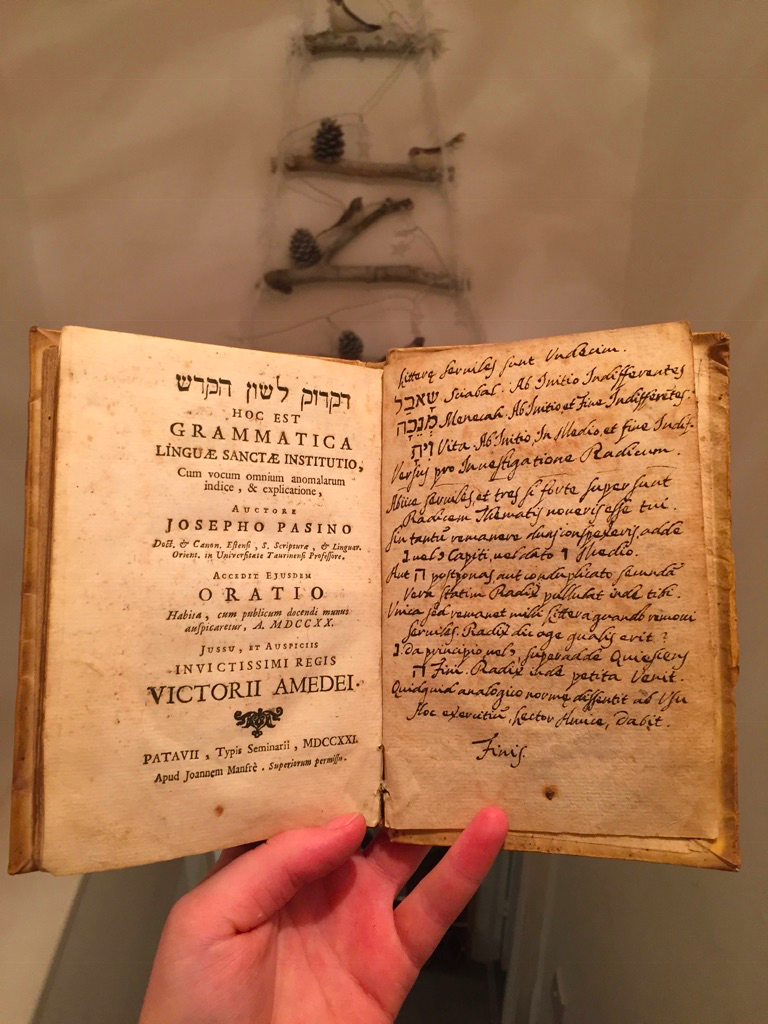 דקדוק לשון הקדש
HOC EST
GRAMMATICA
LINGUÆ SANCTÆ INSTITUTIO,
Cum vocum omnium anomalarum
indice, & explicatione,
AUCTORE
JOSEPHO PASINO
Doct. & Canon. Estensi, S. Scripturæ, & Linguar.
Orient. in Universitate Taurinensi Professore.
ACCEDIT EJUSDEM
ORATIO
Habita, cum publicum docendi munus
auspicaretur, A. MDCCXX.
JUSSU, ET AUSPICIIS
INVICTISSIMI REGIS
VICTORII AMEDEI.
PATAVII, Typis Seminarii, MDCCXXI.
Apud Joannem Manfrè. Superiorum permissu.
Litterę serviles sunt Undecim.
שָׁאכַל Sciabal. Ab Initio Indifferentes
מְנֵכָה Menecah. Ab Initio, et Fine Indifferẽtes.
וְיתָ Vita. Ab Initio, In Medio, et fine Indif.
Versus pro Investigatione Radicum.
Abiice serviles, et tres si forte supersunt
Radicem Thematis noveris esse tui.
Sin tantũ remanere duas conspexeris, adde
נ vel י Capiti, vel dato ו Medio.
Aut ה postponas, aut conduplicato secundã
Vera statim Radix pullulat inde tibi.
Unica sed remanet mihi Littera quando removi
Serviles. Radix dic age qualis erit?
נ Da principio vel י, superadde Quiescens
ה Fini. Radix inde petita Venit.
Quidquid analogico normę dissentit ab Usu
Hoc exercitiũ, Lector Amice, dabit.
Finis.